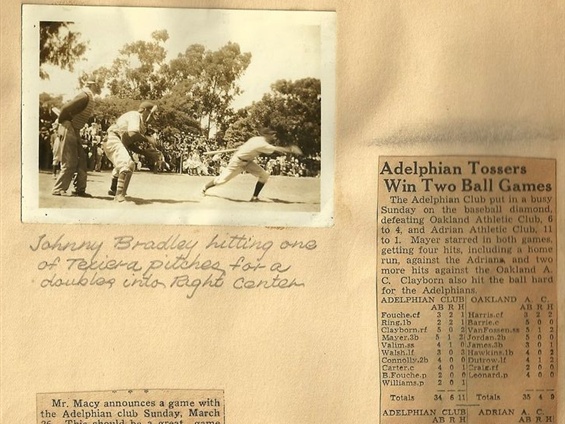 Johnny Bradley hitting one
of Texiera pitches for a
doubles into Right Center
Adelphian Tossers
Win Two Ball Games
The Adelphian Club put in a busy
Sunday on the baseball diamond,
defeating Oakland Athletic Club, 6
to 4, and Adrian Athletic Club, 11
to 1. Mayer starred in both games,
getting four hits, including a home
run, against the Adrians, and two
more hits against the Oakland A.
C. Clayborn also hit the ball hard
for the Adelphians.
ADELPHIAN CLUB OAKLAND A. C.
AB R H AB R H
Fouche.cf 3 2 1 Harris.cf 3 2 2
Ring.1b 2 2 1 Barrie.c 5 0 0
Clayborn.rf 5 0 2 VanFossen.ss 5 1 2
Mayer.3b 5 1 2 Jordan.2b 5 0 0
Valim.ss 4 1 James.3b 3 0 1
Walsh.lf 3 0 Hawkins.1b 4 0 2
Connolly.2b 4 0 0 Dutrow.lf 4 1 2
Carter.c 4 0 1 Craig.rf 2 0 0
B.Fouche.p 2 0 0 Leonard.p 4 0 0
Williams.p 2 0 1
Totals 34 6 11 Totals 35 4 9
ADELPHIAN CLUB ADRIAN A. C.
AB R H AB R H
Mr. Macy announces a game with
the Adelphian club Sunday, March
26. This should be a great game